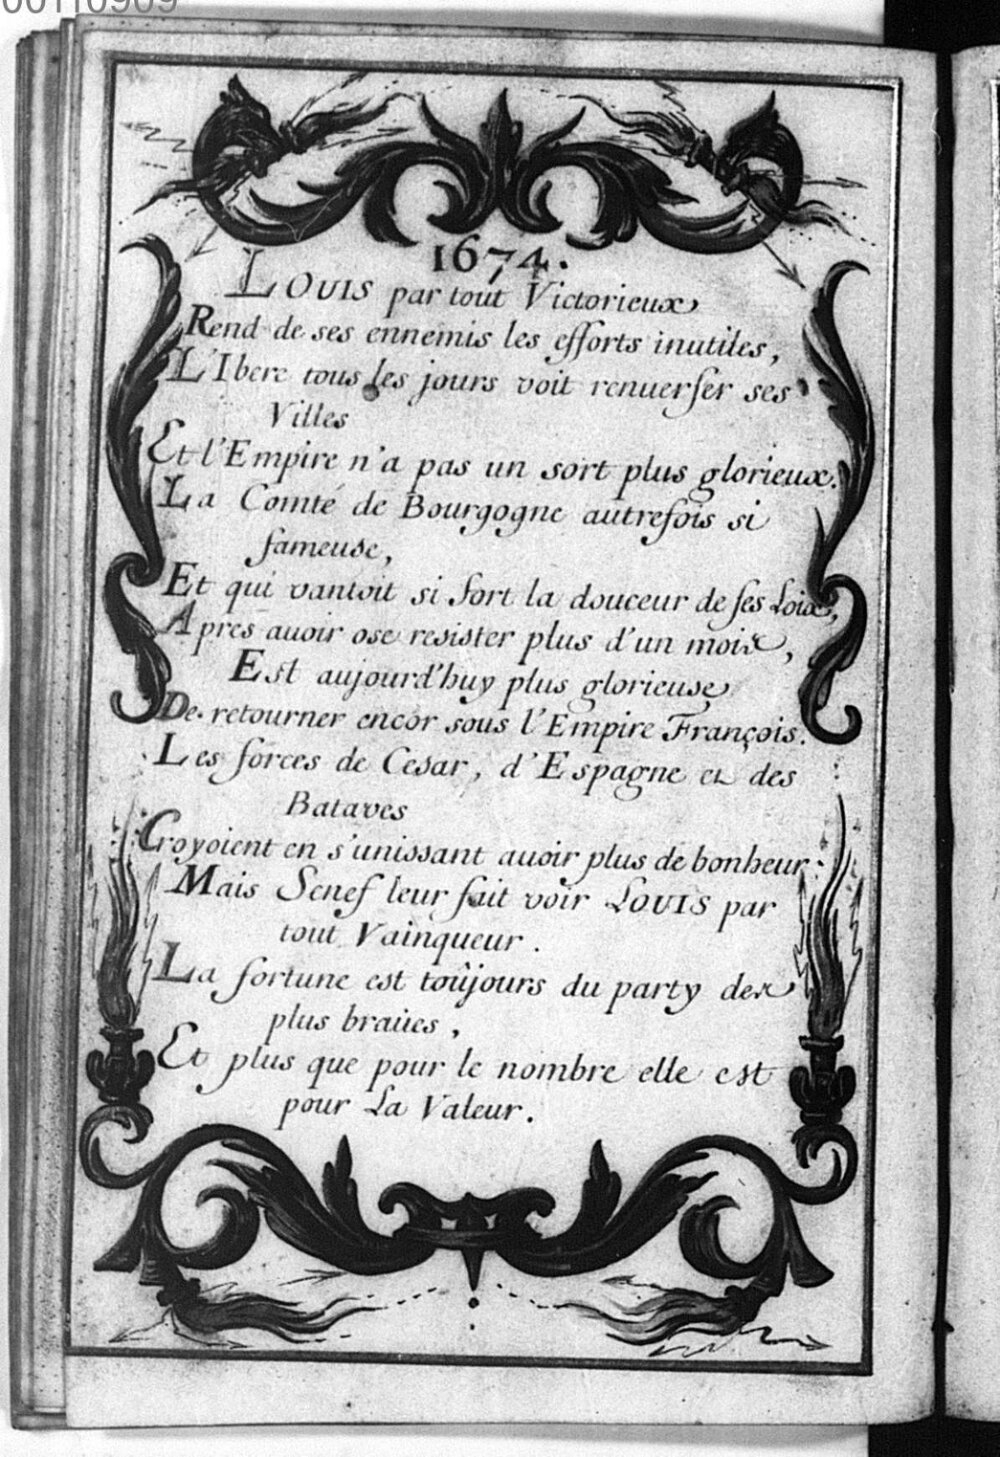 00110909
1674.
LOUIS par tout Victorieux,
Rend de ses ennemis les efforts inutiles,
L'Ibere tous les jours voit renuerser ses
Villes
Et l'Empire n'a pas un sort plus glorieux.
La Comté de Bourgogne autrefois si
fameuse,
Et qui vantoit si fort la douceur de ses Loix,
Apres auoir ose resister plus d'un mois,
Est aujourd'huy plus glorieuse,
De retourner encor sous l'Empire François.
Les forces de Cesar, d'Espagne et des
Bataves
Croyoient en s'unissant auoir plus de bonheur.
Mais Senef leur fait voir LOUIS par
tout Vainqueur.
La fortune est toûjours du party des
plus braües,
Et plus que pour le nombre elle est
pour La Valeur.